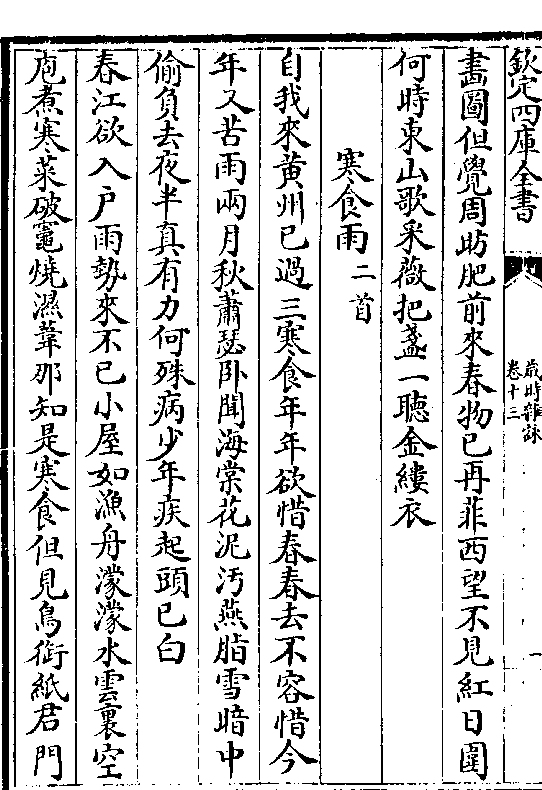 欽定四庫全書
歲時雜詠
卷十三
一
畵圖但覺周昉肥前來春物已再菲西望不見紅日圍
何時東山歌采薇把盞一聽金縷衣
寒食雨二首
自我來黄州已過三寒食年年欲惜春春去不容惜今
年又苦雨兩月秋蕭瑟卧聞海棠花泥汚燕脂雪暗中
偷負去夜半真有力何殊病少年疾起頭已白
春江欲入户雨勢來不已小屋如漁舟濛濛水雲裏空
庖煮寒菜破竈燒濕葦那知是寒食但見烏銜紙君門